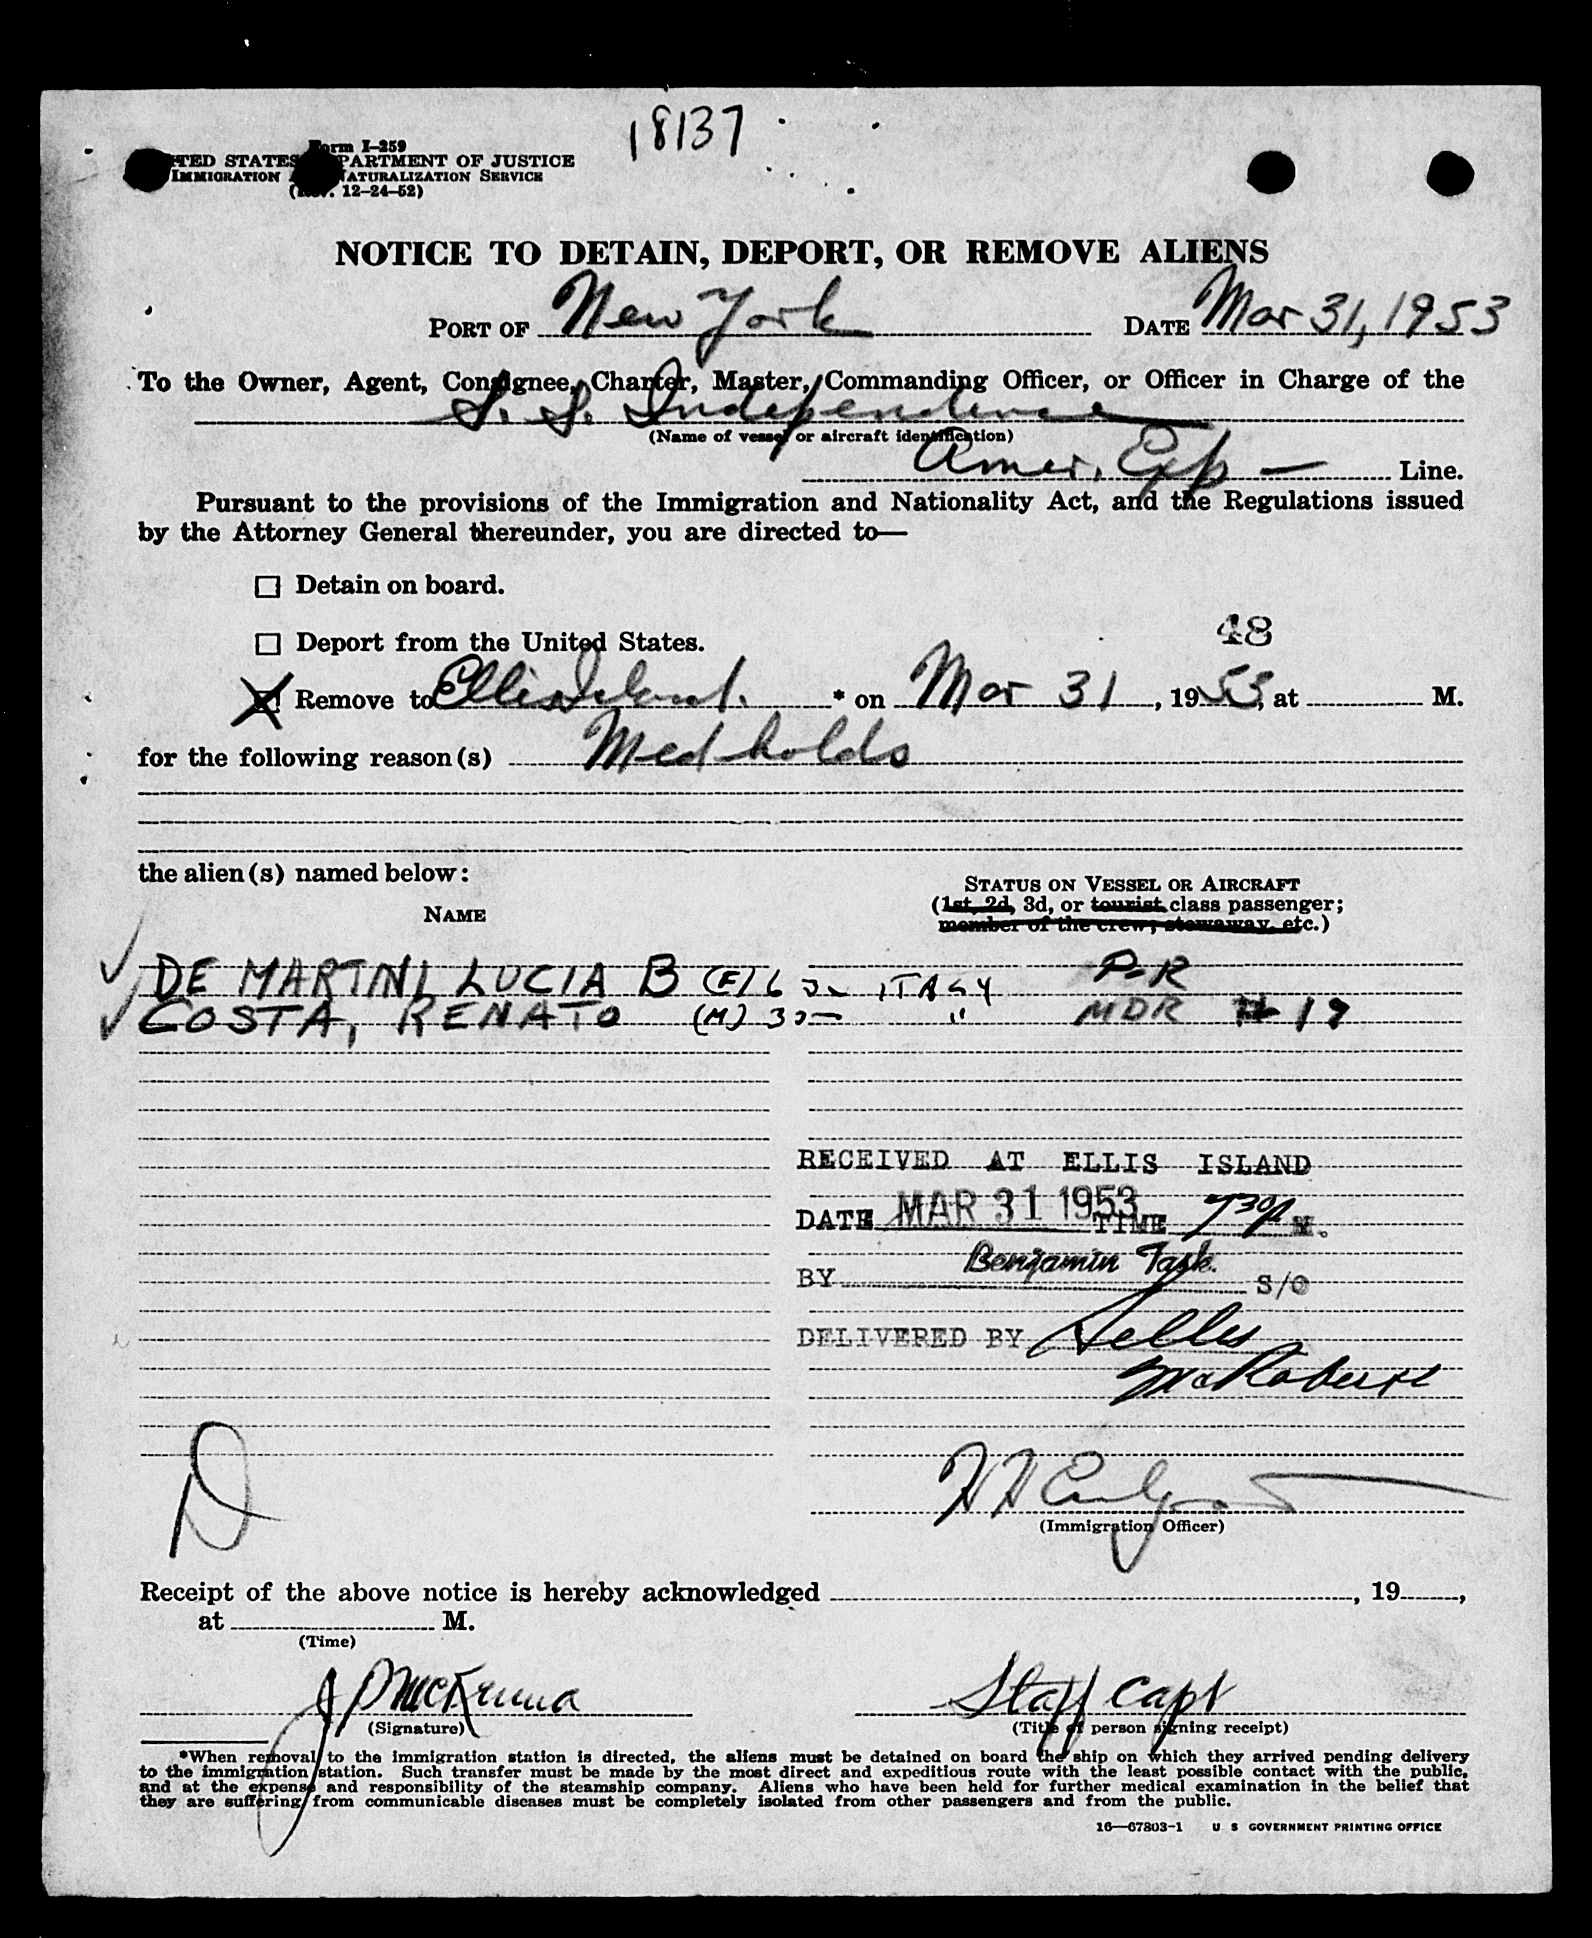 18137
Form I-259
UNITED STATES DEPARTMENT OF JUSTICE
IMMIGRATION AND NATURALIZATION SERVICE
(Rev. 12-24-52)
NOTICE TO DETAIN, DEPORT, OR REMOVE ALIENS
PORT OF New York DATE Mar 31, 1953
To the Owner, Agent, Consignee, Charter, Master, Commanding Officer, or Officer in Charge of the
S. S. Independence
(Name of vessel or aircraft identification)
Amer. Exp — Line.
Pursuant to the provisions of the Immigration and Nationality Act, and the Regulations issued
by the Attorney General thereunder, you are directed to—
Detain on board.
Deport from the United States.
48
Remove to Ellis Island. * on Mar 31, 1953, at M.
for the following reason(s) Med holds
the alien(s) named below:
STATUS ON VESSEL OR AIRCRAFT
(1st, 2d, 3d, or tourist class passenger;
member of the crew; stowaway, etc.)
NAME
DE MARTINI LUCIA B (F) 6 ITALY P-R
COSTA, RENATO (M) 30 " MDR # 19
RECEIVED AT ELLIS ISLAND
DATE MAR 31 1953 TIME 730P M.
BY Benjamin Task S/O
DELIVERED BY
McRoberts
D
(Immigration Officer)
Receipt of the above notice is hereby acknowledged , 19 ,
at M.
(Time)
J P McKenna Staff Capt
(Signature) (Title of person signing receipt)
*When removal to the immigration station is directed, the aliens must be detained on board the ship on which they arrived pending delivery
to the immigration station. Such transfer must be made by the most direct and expeditious route with the least possible contact with the public,
and at the expense and responsibility of the steamship company. Aliens who have been held for further medical examination in the belief that
they are suffering from communicable diseases must be completely isolated from other passengers and from the public.
16—67803-1 U S GOVERNMENT PRINTING OFFICE